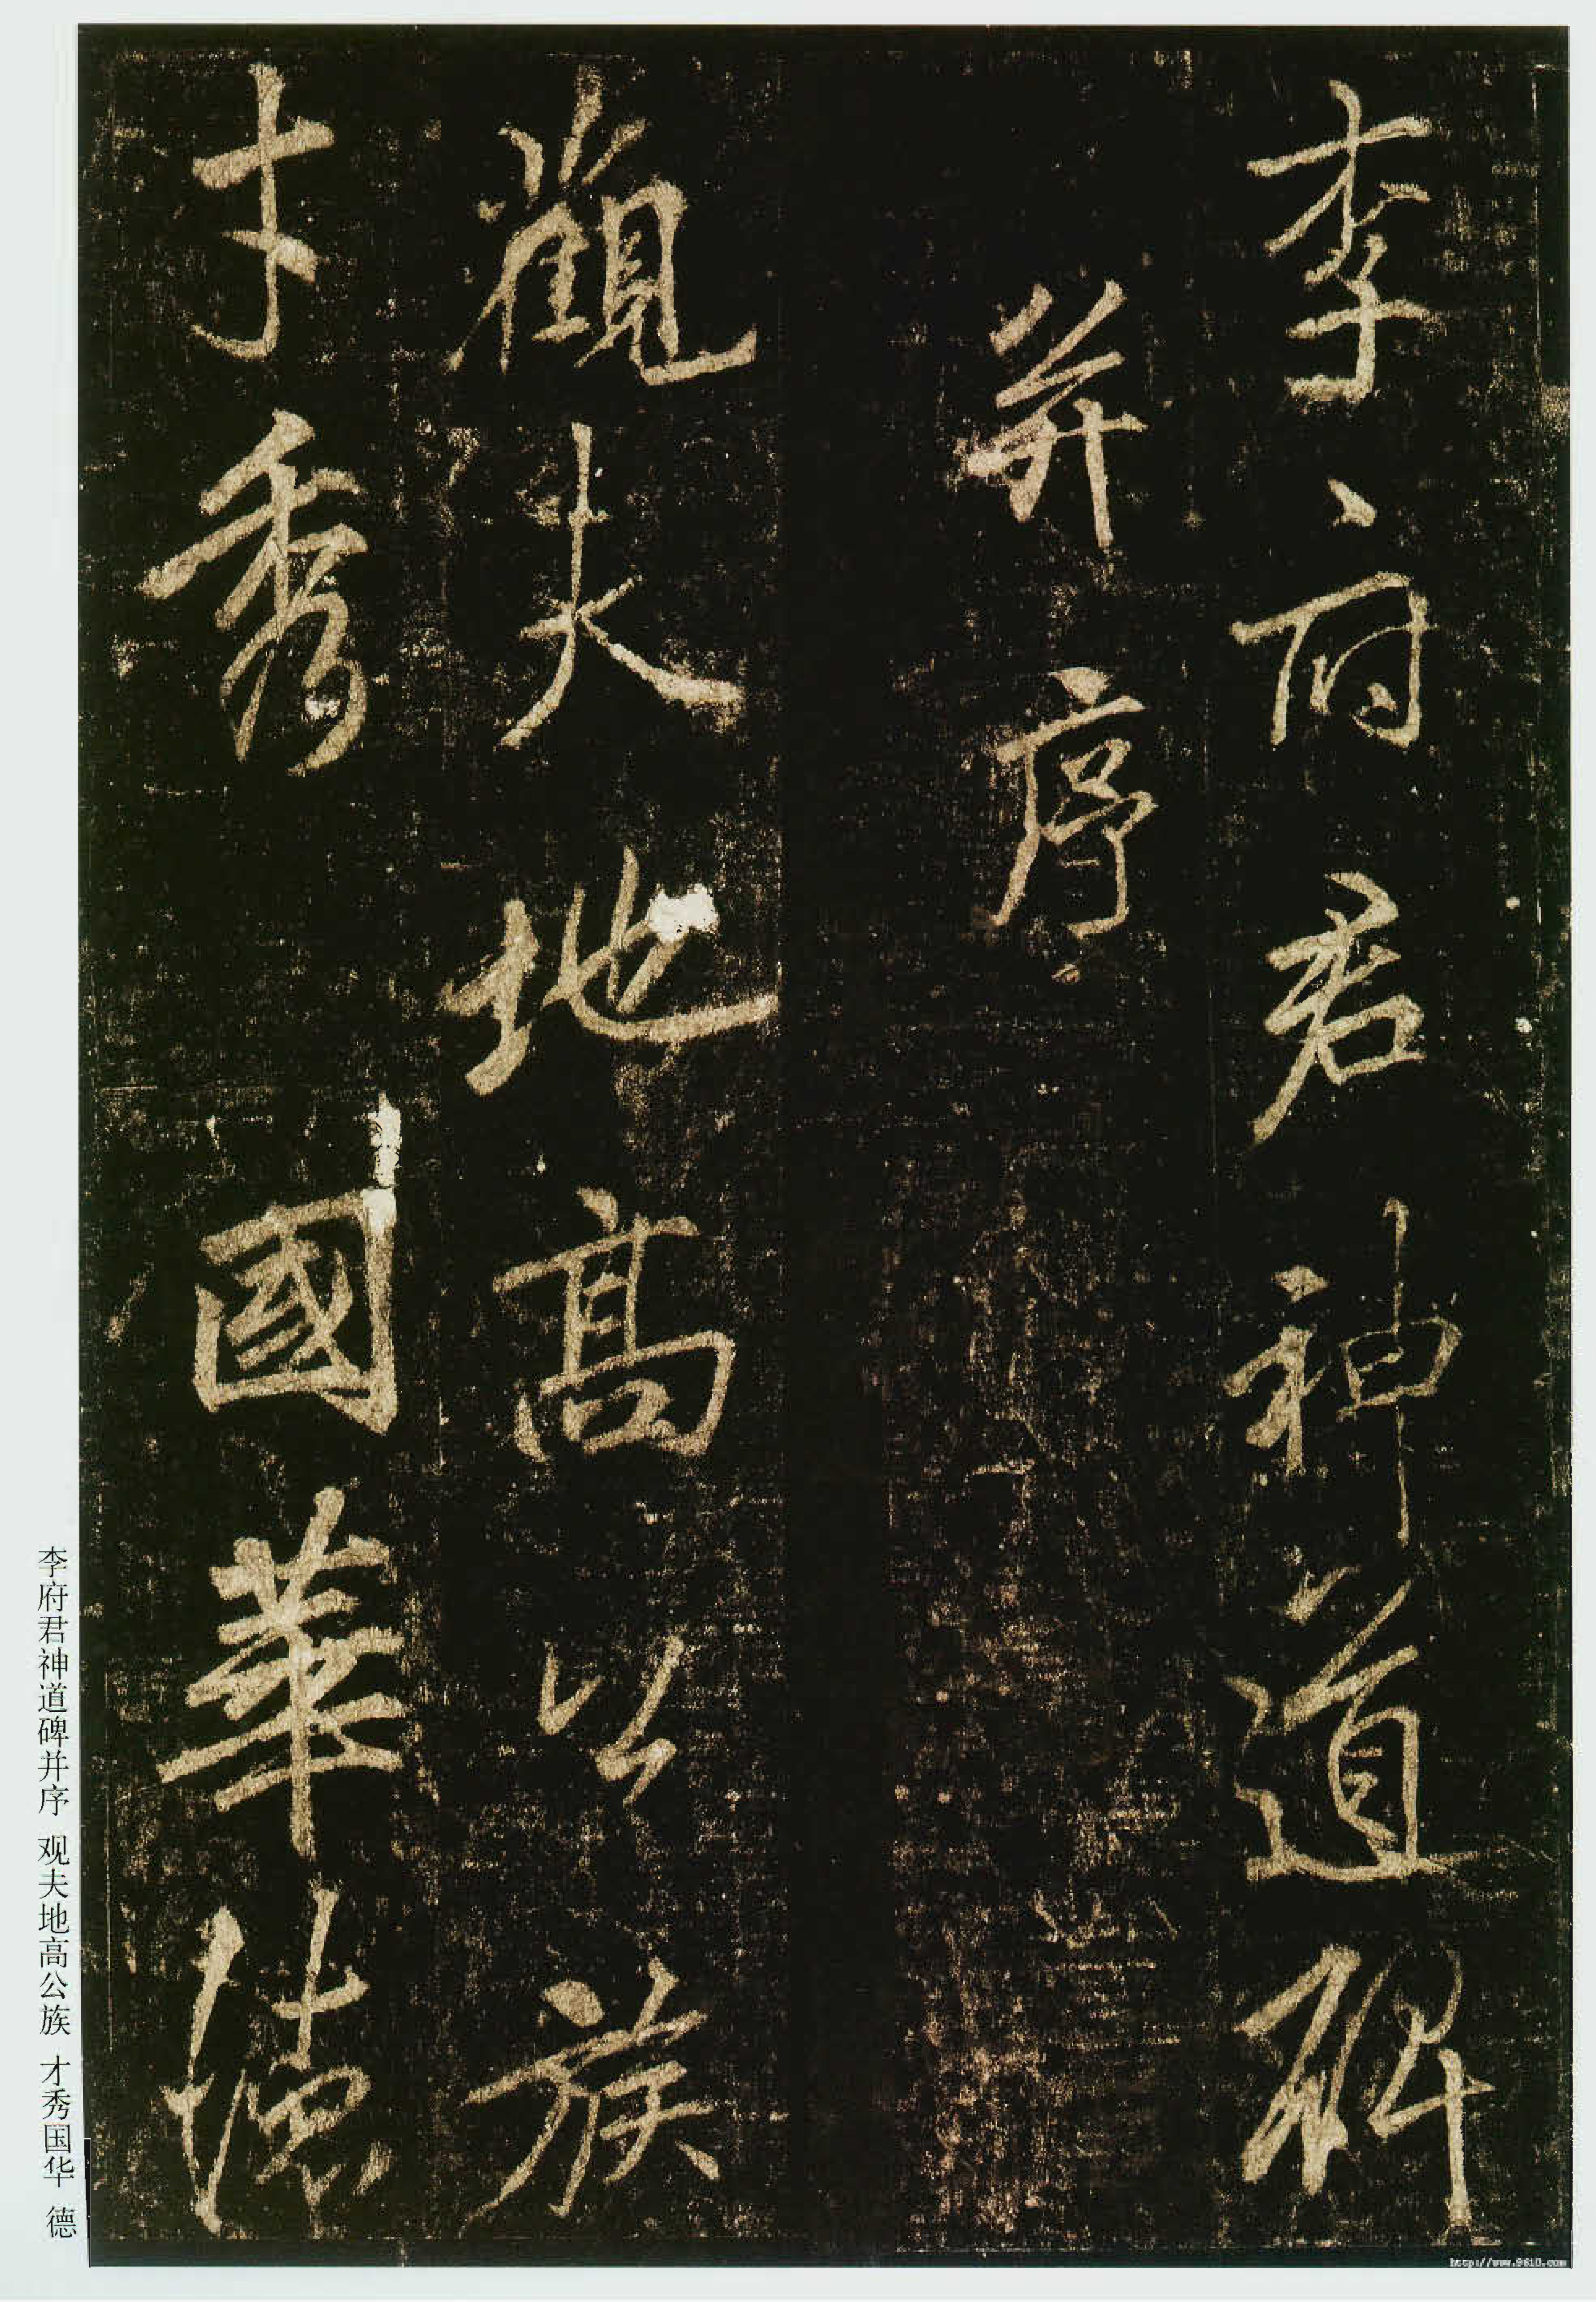 李府君神道碑
并序
觀夫地高公族
才秀國華德
李府君神道碑并序 观夫地高公族 才秀国华 德
http://www.9610.com